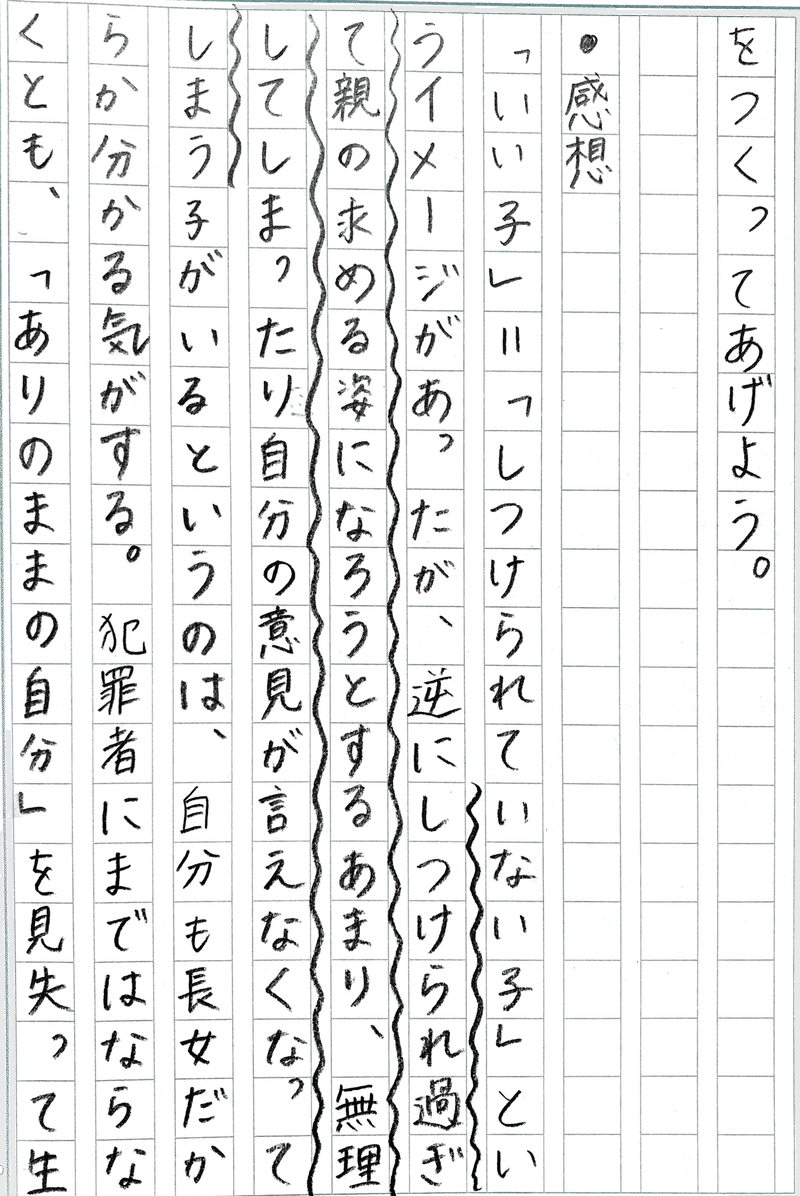 をつくってあげよう。
・感想
「いい子」＝「しつけられていない子」とい
うイメージがあったが、逆にしつけられ過ぎ
て親の求める姿になろうとするあまり、無理
してしまったり自分の意見が言えなくなって
しまう子がいるというのは、自分も長女だか
らか分かる気がする。犯罪者にまではならな
くとも、「ありのままの自分」を見失って生